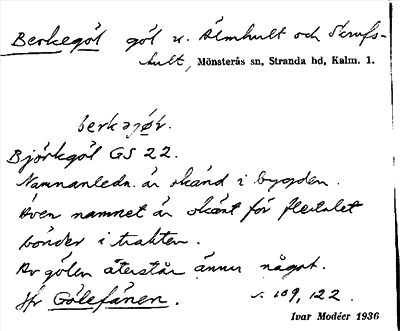 Berkegöl göl u. Älmhult och Skrufs-
hult, Mönsterås sn, Stranda hd, Kalm. l.
berkəjø̄r.
Björkgöl GS 22.
Namnanledn. är okänd i bygden.
Även namnet är okänt för flertalet
bönder i trakten.
Av gölen återstår ännu något.
Jfr Gölefänen. s. 109, 122.
Ivar Modéer 1936